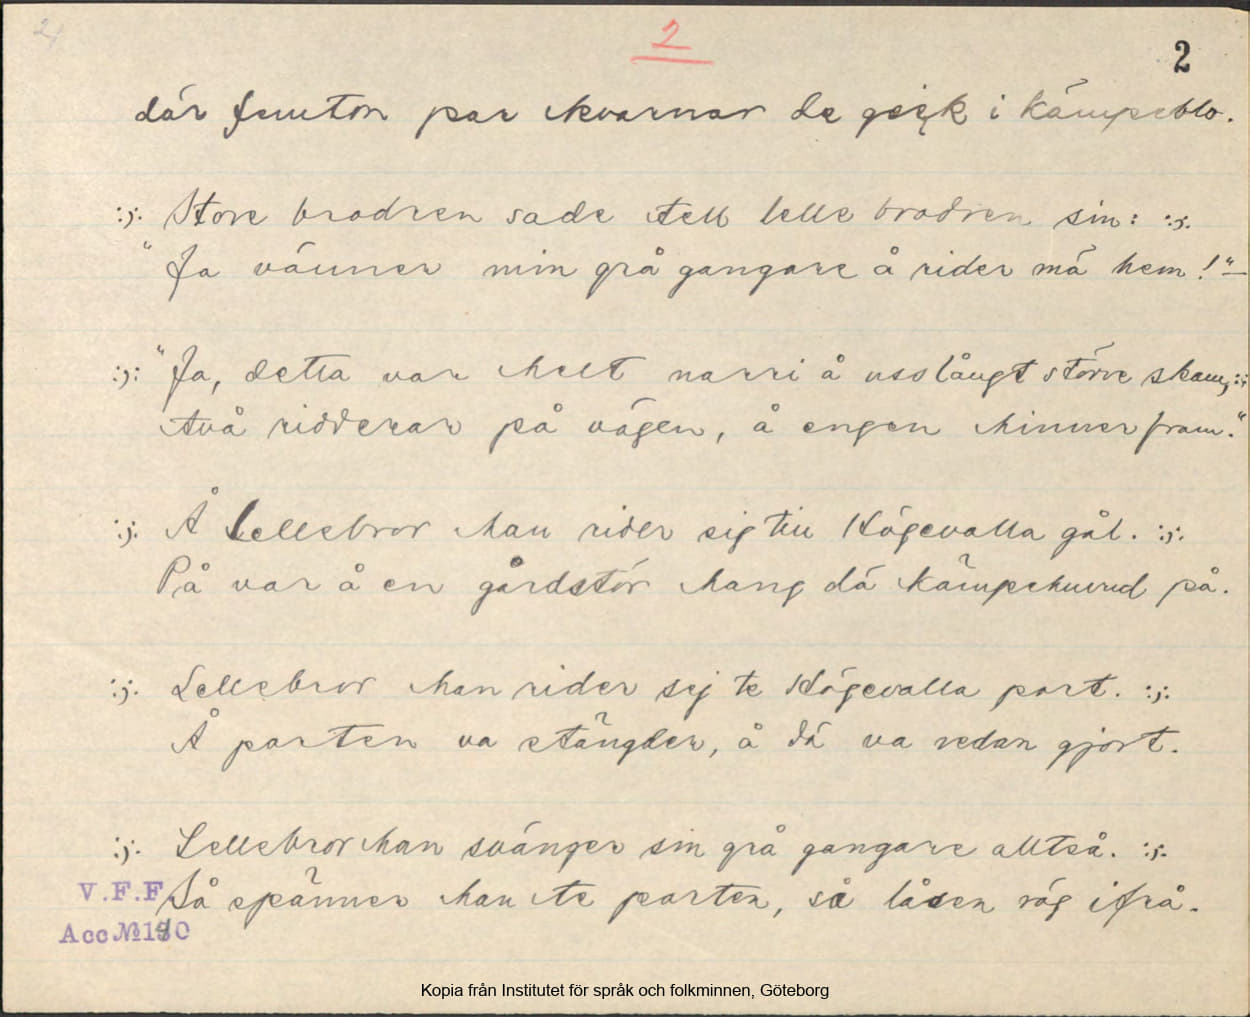 2
2
där femton par kvarnar de gick i kämpeblo.
:;: Store brodren sade tell lelle brodren sin: :;:
"Ja vänner min grå gangare å rider mä hem!"
:;: "Ja, detta var helt narri å usslångt störve skam, :;:
två ridderar på vägen, å engen hinner fram."
:;: Å Lellebror han rider sig till Högevalla gål. :;:
På var å en gårdstör hang dä kämpehuvud på.
:;: Lellebror han rider sej te Högevalla port. :;:
Å porten va stängder, å dä va redan gjort.
:;: Lellebror han svänger sin grå gangare alltså. :;:
Så spänner han te porten, så låsen rög ifrå.
V.F.F.
Acc № 140
Kopia från Institutet för språk och folkminnen, Göteborg